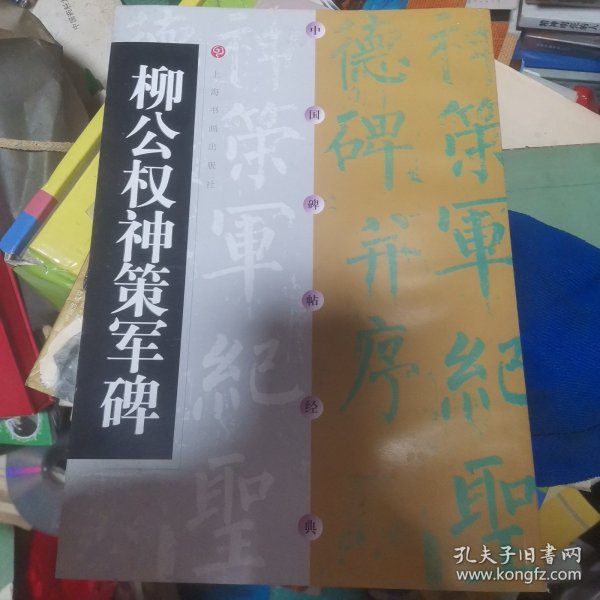 柳公权神策军碑
上海书画出版社
中国碑帖经典
神策軍紀聖
德碑并序
神策軍紀聖
孔夫子旧书网
www.kongfz.com